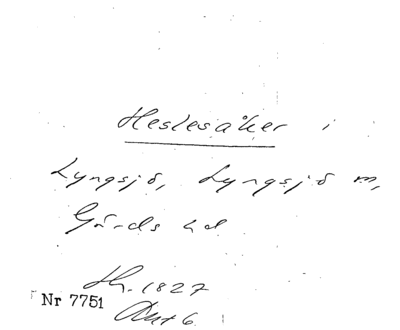 Heslesåker i
Lyngsjö, Lyngsjö m,
Gärds hd
Hr. 1827
Nr 7751
Akt 6